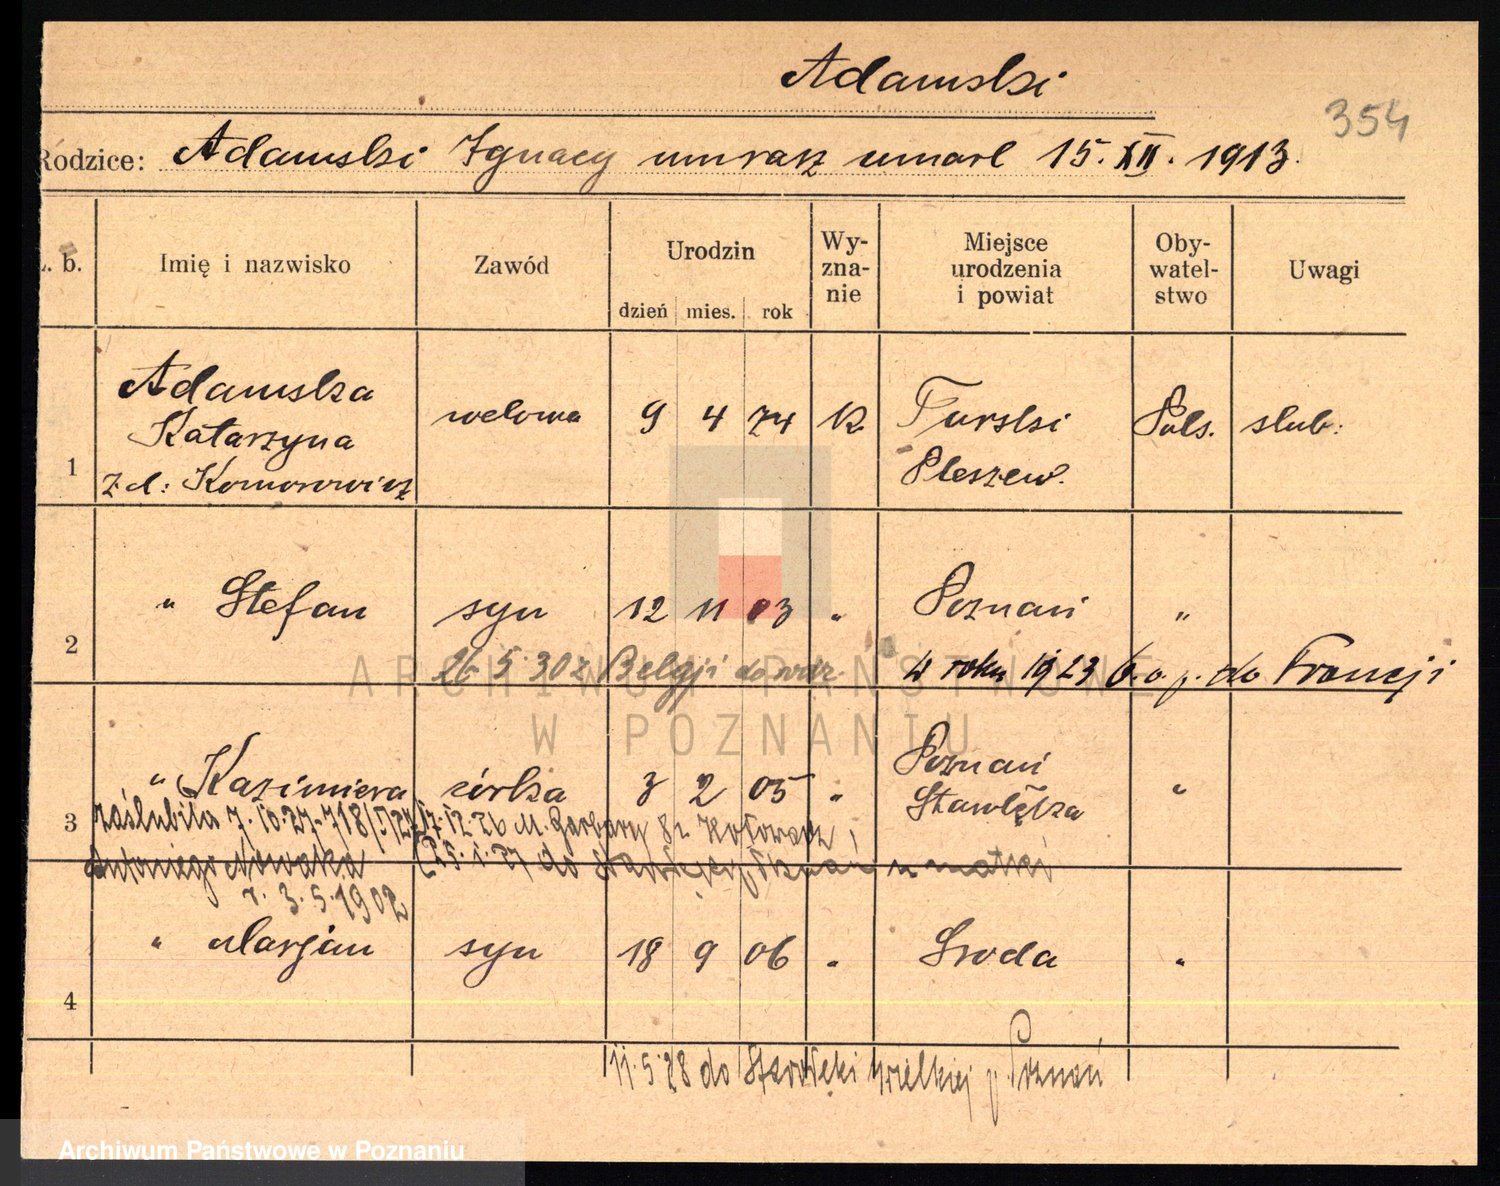 Adamski
354
Rodzice: Adamski Ignacy murarz umarl 15. XII. 1913.
L. b. Imię i nazwisko Zawód Urodzin dzień mies. rok Wy-zna-nie Miejsce urodzenia i powiat Oby-watel-stwo Uwagi
Adamska
Katarzyna wdowa 9 4 74 K. Turski Pols. slub:
1 z d: Komorowicz Pleszew.
" Stefan syn 12 11 03 " Poznań "
2 26 5 30 z Belgji do w roku 1923 b.o.p. do Francji
" Kazimiera córka 3 2 05 " Poznań "
Stawlęka
3 zaślubiła 7.10.27-718/ 17.12 26 M. Garbary 82
Antoniego Nowaka 25.1.27 do Poznań u matki
r. 3.5.1902
" Marjan syn 18 9 06 " Sroda "
4
11.5.28 do Starołęki Wielkiej p. Poznań
ARCHIWUM PAŃSTWOWE
W POZNANIU
Archiwum Państwowe w Poznaniu